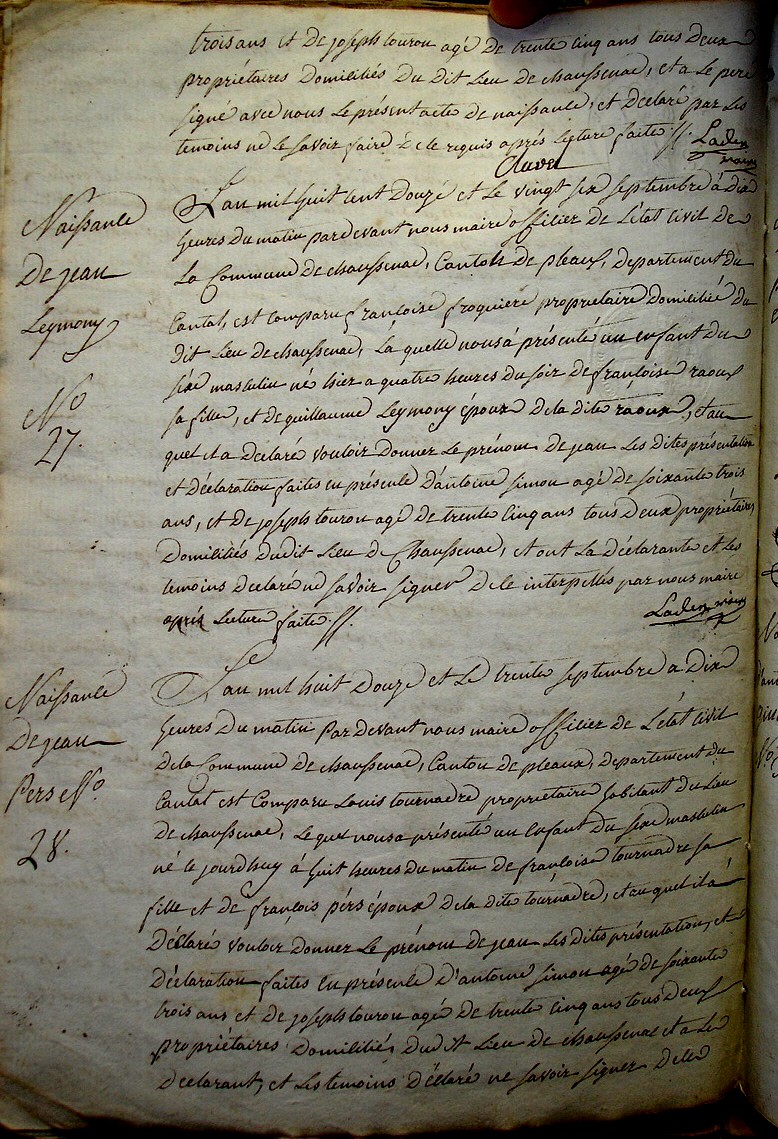 trois ans et de joseph touron agé de trente cinq ans tous deux
propriétaires domiciliés du dit Lieu de chaussenac, et a Le pere
signé avec nous Le présent acte de naissance, et déclaré par Les
temoins ne Le savoir faire de ce requis aprés Lecture faite //. Laden
Clavel maire
Naissance
De jean
Leymony
No
27.
L'an mil huit cent Douze et Le vingt six septembre à dix
heures du matin par devant nous maire officier de L'état Civil de
La Commune de chaussenac, Canton de pleaux, departement du
Cantal, est comparu françoise froquiere propriétaire domiciliée du
dit Lieu de chaussenac, La quelle nous a présenté un enfant du
sexe masculin né hier a quatre heures du soir de françoise raoux
sa fille, et de guillaume Leymony époux de la dite raoux, et au
quel il a déclaré vouloir donner Le prénom de jean Les dites présentation
et Déclaration faites en présence d'antoine simon agé de soixante trois
ans, et de joseph touron agé de trente cinq ans tous deux propriétaires
domiciliés du dit Lieu de Chaussenac, et ont La déclarante et Les
temoins declaré ne savoir signer de ce interpellés par nous maire
aprés Lecture faite //. Laden maire
Naissance
De jean
Pers No.
28.
L'an mil huit Douze et Le trente septembre a Dix
heures Du matin Par devant nous maire officier de L'état Civil
de la Commune de chaussenac, Canton de pleaux, departement du
Cantal est Comparu Louis tournadre propriétaire habitant du Lieu
de chaussenac, Le quel nous a présenté un enfant du sexe masculin
né le jourdhuy à huit heures du matin de françoise tournadre sa
fille et de françois pérs époux de la dite tournadre, et au quel il a
Déclaré vouloir Donner Le prénom de jean Les dites présentation, et
Déclaration faites en présence d'antoine simon agé de soixante
trois ans et de joseph touron agé de trente cinq ans tous deux
propriétaires Domiciliés du dit Lieu de chaussenac et a Le
declarant, et Les temoins déclaré ne savoir signer de ce